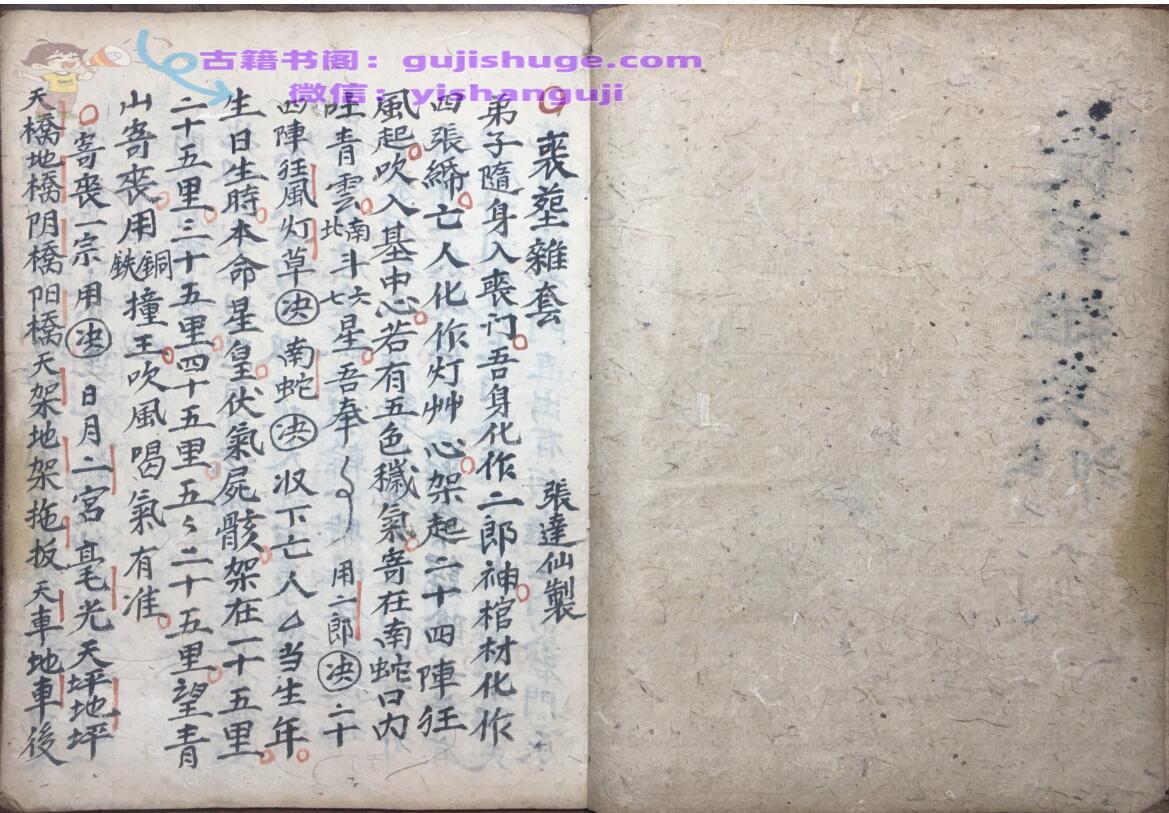 古籍书阁：gujishuge.com
微信：yishanguji
喪堂雜套 張達仙製
弟子隨身入喪门吾身化作二郎神棺材化作
四張綿亡人化作灯艸心架起二十四陣狂
風起吹入基中心若有五色穢氣寄在南蛇口内
吐青雲南北斗六七星吾奉 用二郎決二十
四陣狂風灯草決南蛇決收下亡人厶当生年
生日生時本命星皇伏氣屍骸架在一十五里
二十五里三十五里四十五里五〻二十五里望青
山寄喪用銅鉄撞王吹風喝氣有准
寄喪一宗用決日月二宮毫光天坪地坪
天橋地橋阴橋阳橋天架地架拖板天車地車後